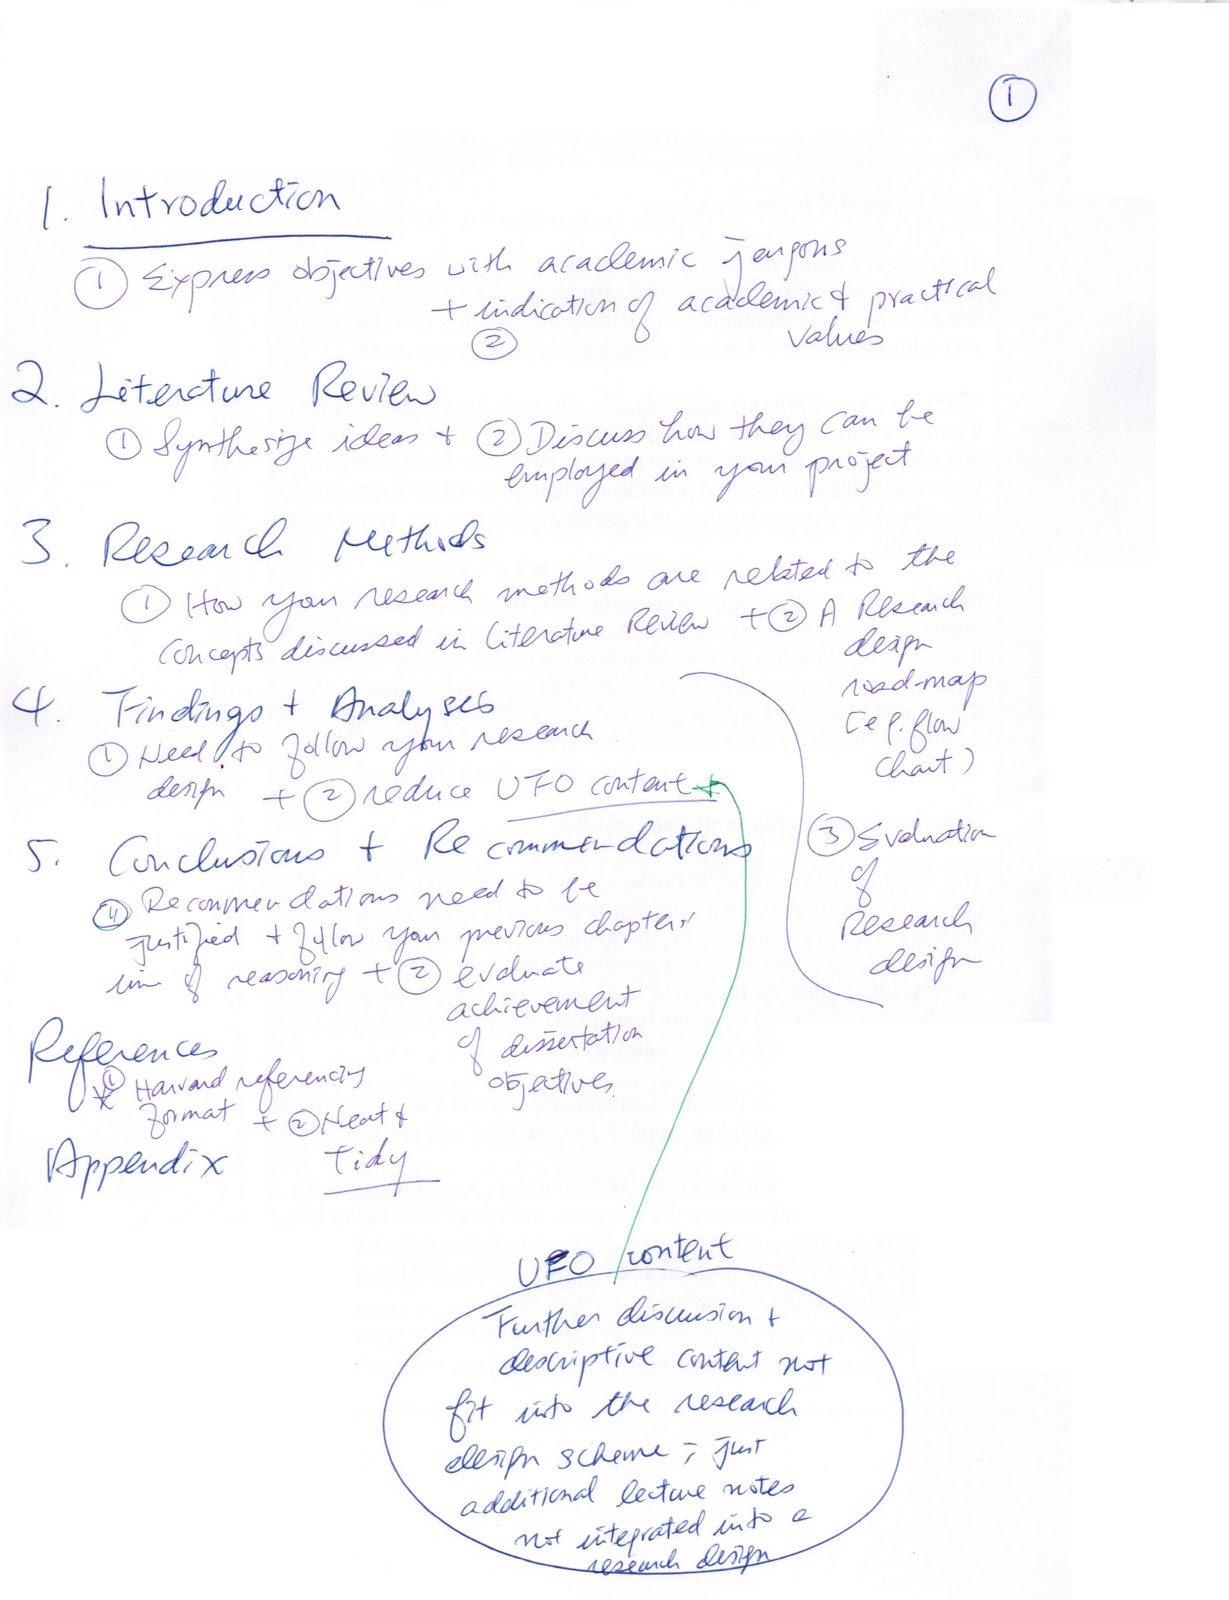 ①
1. Introduction
① Express objectives with academic jargons
+ indication of academic & practical
② values
2. Literature Review
① Synthesize ideas + ② Discuss how they can be
employed in your project
3. Research Methods
① How your research methods are related to the
concepts discussed in Literature Review + ② A Research
design
road-map
(e.g. flow
chart)
③ Evaluation
of
Research
design
4. Findings + Analyses
① Need to follow your research
design + ② reduce UFO content
5. Conclusions + Recommendations
① Recommendations need to be
justified + follow your previous chapters
line of reasoning + ② evaluate
achievement
of dissertation
objectives
References
① Harvard referencing
format + ② Neat &
Tidy
Appendix
UFO content
Further discussion +
descriptive content not
fit into the research
design scheme; just
additional lecture notes
not integrated into a
research design